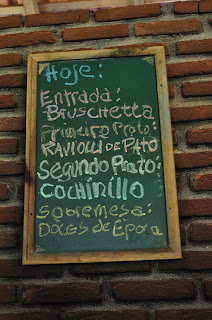 Hoje:
Entrada:
Bruschetta
Primeiro Prato:
RAViOLLi DE PATO
Segundo Prato:
COCHiNiLLO
Sobremesa:
Doces de Época